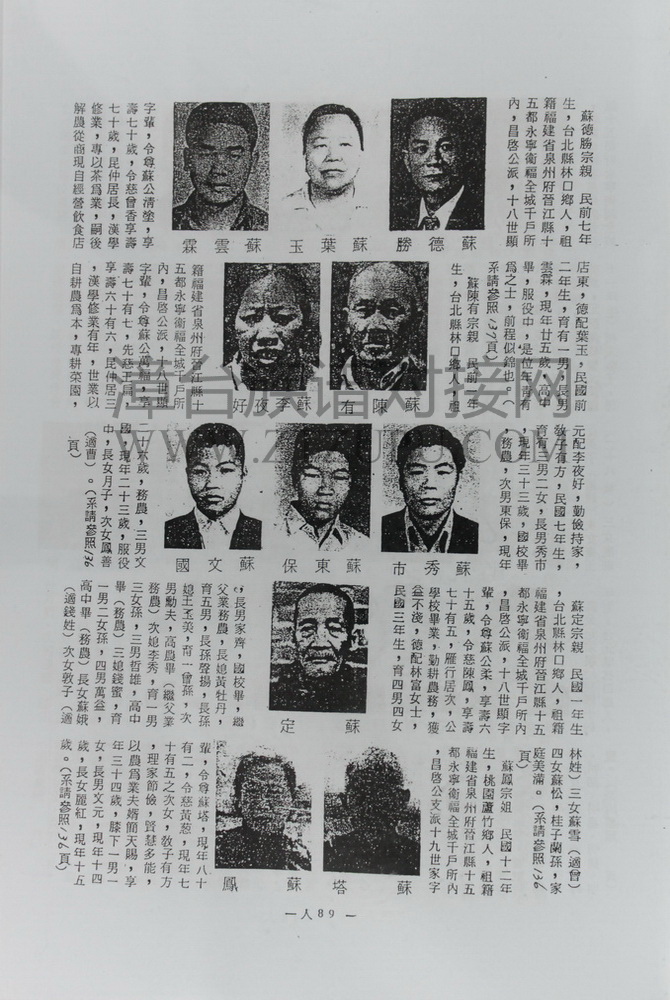 蘇德勝宗親　民前七年
生，台北縣林口鄉人，祖
籍福建省泉州府晉江縣十
五都永寧衛福全城千戶所
內，昌啓公派，十八世顯
蘇德勝
蘇葉玉
蘇雲霖
字輩，令尊蘇公清塗，享
壽七十歲，令慈曾香享壽
七十歲，昆仲居長，漢學
修業，專以茶爲業，嗣後
解農從商現自經營飲食店
店東，德配葉玉，民國前
二年生，育有一男，長男
雲霖，現年廿五歲，高中
畢，服役中，是位年青有
爲之士，前程似錦也。（
系請參照137頁）
蘇陳有宗親　民前一年
生，台北縣林口鄉人，祖
蘇陳有
蘇李夜好
籍福建省泉州府晉江縣十
五都永寧衛福全城千戶所
內，昌啓公派，十八世顯
字輩，令尊蘇公萬福，享
壽七十有七，先慈王屘，
享壽六十有六，昆仲居三
，漢學修業有年，世業以
自耕農爲本，專耕菜園，
元配李夜好，勤儉持家，
教子有方，民國七年生，
育有三男二女，長男秀市
，現年三十三歲，國校畢
，務農，次男東保，現年
蘇秀市
蘇東保
蘇文國
二十六歲，務農，三男文
國，現年二十三歲，服役
中，長女月子，次女鳳善
（適曹）。（系請參照136
頁）
蘇定宗親　民國一年生
，台北縣林口鄉人，祖籍
福建省泉州府晉江縣十五
都永寧衛福全城千戶所內
，昌啓公派，十八世顯字
輩，令尊蘇公柔，享壽六
十五歲，令慈陳鳳，享壽
七十有五，雁行居次，公
學校畢業，勤耕農務，獲
益不淺，德配林富女士，
民國三年生，育四男四女
蘇定
，長男家齊，國校畢，繼
父業務農，長媳黃牡丹，
育五男，長孫聲揚，長孫
媳王玉美，育一曾孫，次
男勳夫，高農畢（繼父業
務農）次媳李秀，育一男
三女孫，三男哲雄，高中
畢（務農）三媳錢蜜，育
一男二女孫，四男萬益，
高中畢（務農）長女蘇娥
（適錢姓）次女敦子（適
林姓）三女蘇雪（適曾）
四女蘇忪，桂子蘭孫，家
庭美滿。（系請參照136
頁）
蘇鳳宗姐　民國十二年
生，桃園蘆竹鄉人，祖籍
福建省泉州府晉江縣十五
都永寧衛福全城千戶所內
，昌啓公支派十九世家字
蘇塔
蘇鳳
輩，令尊蘇塔，現年八十
有二，令慈黃葱，現年七
十有五之次女，教子有方
，理家節儉，賢慧多能，
以農爲業夫婿簡天賜，享
年三十四歲，膝下一男一
女，長男文元，現年十四
歲，長女麗紅，現年十五
歲。（系請參照136頁）
— 人89 —
漳台族譜对接网
WWW.ZTZUPU.COM